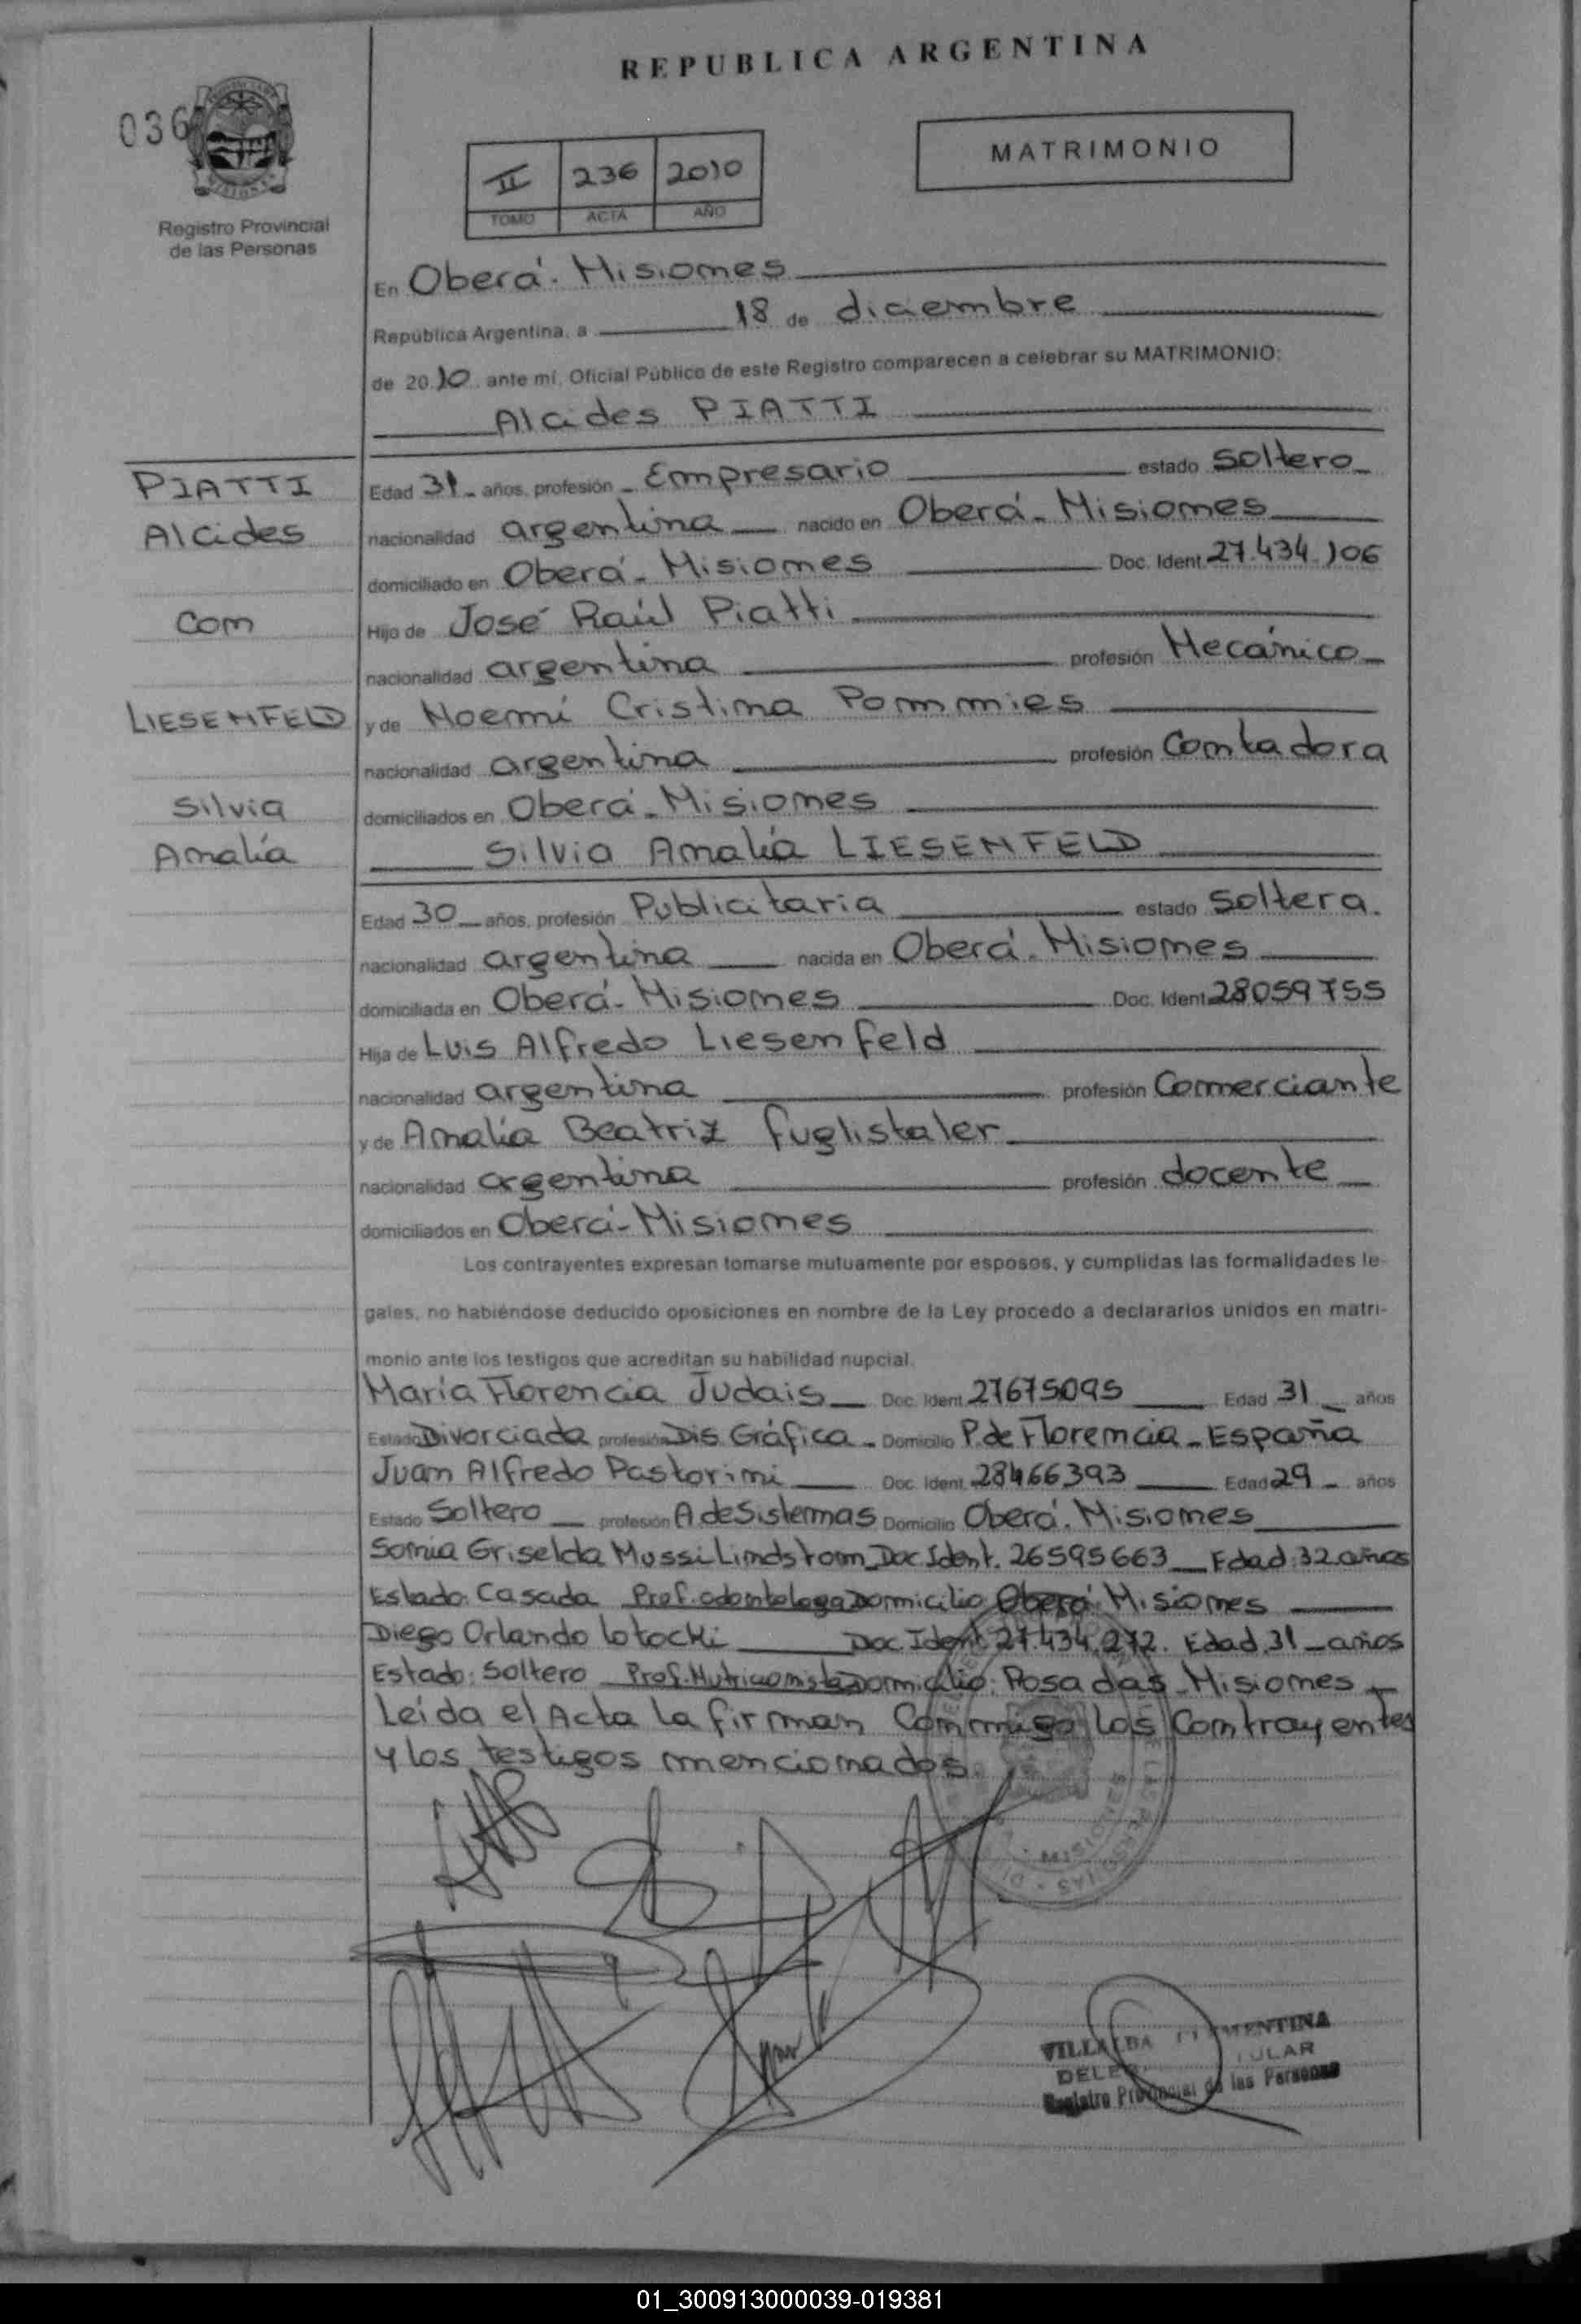 REPUBLICA ARGENTINA
036
MATRIMONIO
II 236 2010
TOMO ACTA AÑO
Registro Provincial
de las Personas
En Oberá. Misiones
República Argentina, a 18 de diciembre
de 2010 ante mí, Oficial Público de este Registro comparecen a celebrar su MATRIMONIO:
Alcides PIATTI
PIATTI
Alcides
con
LIESENFELD
Silvia
Amalia
Edad 31 años, profesión Empresario estado Soltero
nacionalidad argentina nacido en Oberá - Misiones
domiciliado en Oberá - Misiones Doc. Ident 27.434.106
Hijo de José Raúl Piatti
nacionalidad argentina profesión Mecánico
y de Noemí Cristina Pommies
nacionalidad argentina profesión Contadora
domiciliados en Oberá - Misiones
Silvia Amalia LIESENFELD
Edad 30 años, profesión Publicitaria estado Soltera.
nacionalidad argentina nacida en Oberá - Misiones
domiciliada en Oberá - Misiones Doc. Ident 28059755
Hija de Luis Alfredo Liesenfeld
nacionalidad argentina profesión Comerciante
y de Amalia Beatriz Fuglistaler
nacionalidad argentina profesión docente
domiciliados en Oberá - Misiones
Los contrayentes expresan tomarse mutuamente por esposos, y cumplidas las formalidades le-
gales, no habiéndose deducido oposiciones en nombre de la Ley procedo a declararlos unidos en matri-
monio ante los testigos que acreditan su habilidad nupcial.
María Florencia Judais Doc. Ident 27675095 Edad 31 años
Estado Divorciada profesión Dis. Gráfica - Domicilio P. de Florencia - España
Juan Alfredo Pastorini Doc. Ident 28466393 Edad 29 años
Estado Soltero profesión A de Sistemas Domicilio Oberá. Misiones
Sonia Griselda Mussi Lindstrom Doc. Ident. 26595663 Edad: 32 años
Estado: Casada Prof. odontologa Domicilio: Oberá Misiones
Diego Orlando Lotocki Doc. Ident 27.434.272. Edad 31 años
Estado: Soltero Prof. Nutricionista Domicilio: Posadas - Misiones
Leída el Acta la firman Conmigo los Contrayentes
y los testigos mencionados.
MISIONES
VILLALBA CLEMENTINA
Registro Provincial de las Personas
01_300913000039-019381